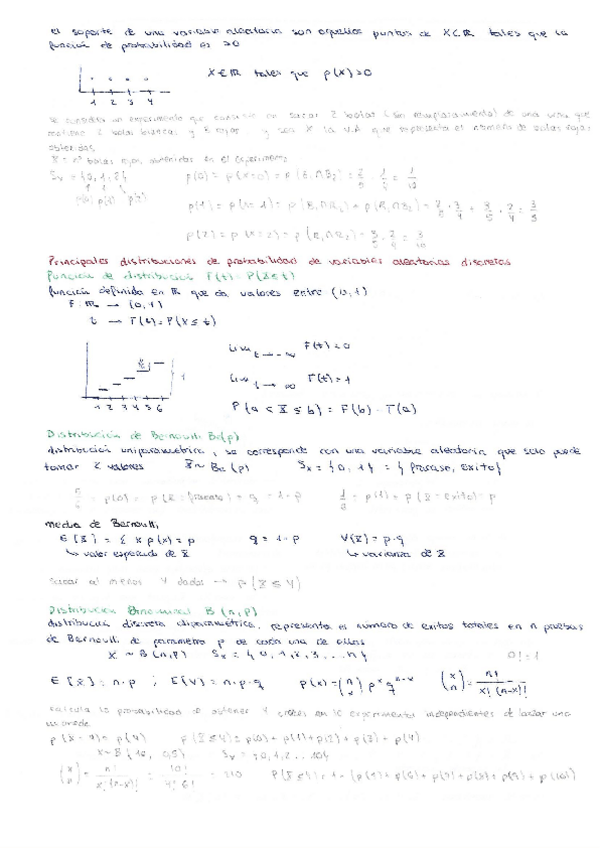 el soporte de una variable aleatoria son aquellos puntos de X⊂ℝ tales que la
función de probabilidad es >0
X∈ℝ tales que p(X)>0
1 2 3 4
se considera un experimento que consiste en sacar 2 bolas (sin reemplazamiento) de una urna que
contiene 2 bolas blancas y 3 rojas y sea X la V.A que representa el número de bolas rojas
obtenidas
X = nº bolas rojas obtenidas en el experimento
Sx = {0,1,2}
p(0) p(1) p(2)
p(0) = p(X=0) = p(B₁∩B₂) = 2/5 · 1/4 = 1/10
p(1) = p(X=1) = p(B₁∩R₂) + p(R₁∩B₂) = 2/5 · 3/4 + 3/5 · 2/4 = 3/5
p(2) = p(X=2) = p(R₁∩R₂) = 3/5 · 2/4 = 3/10
Principales distribuciones de probabilidad de variables aleatorias discretas
Función de distribución F(t) = P(X≤t)
función definida en ℝ que da valores entre (0,1)
F: ℝ → (0,1)
t → F(t) = P(X≤t)
lim t→-∞ F(t)=0
lim t→∞ F(t)=1
P(a < X ≤ b) = F(b) - F(a)
1 2 3 4 5 6
Distribución de Bernoulli Be(p)
distribución uniparamétrica, se corresponde con una variable aleatoria que solo puede
tomar 2 valores X~Be(p) Sx = {0,1} = {fracaso, exito}
= p(0) = p(X=fracaso) = q = 1-p = p(1) = p(X=exito) = p
media de Bernoulli
E[X] = Σ x p(x) = p q = 1-p V(X) = p·q
↳ valor esperado de X ↳ varianza de X
sacar al menos 4 dados → p(X≤4)
Distribución Binominal B(n,p)
distribución discreta biparamétrica, representa el número de exitos totales en n pruebas
de Bernoulli de parametro p de cada una de ellas
X ~ B(n,p) Sx = {0,1,2,3...n} 0!=1
E[X] = n·p ; E(V) = n·p·q p(x) = (n x) pˣ qⁿ⁻ˣ (x n) = n!/x!(n-x)!
calcula la probabilidad de obtener 4 en 10 experimentos independientes de lanzar una
moneda
p(X=4) = p(4) F(X≤4) = p(0) + p(1) + p(2) + p(3) + p(4)
X~B(10, 0,5) Sx = {0,1,2...10}
(x n) = n!/x!(n-x)! = 10!/4!6! = 210 P(X≤4) = 1 - (p(5) + p(6) + p(7) + p(8) + p(9) + p(10))